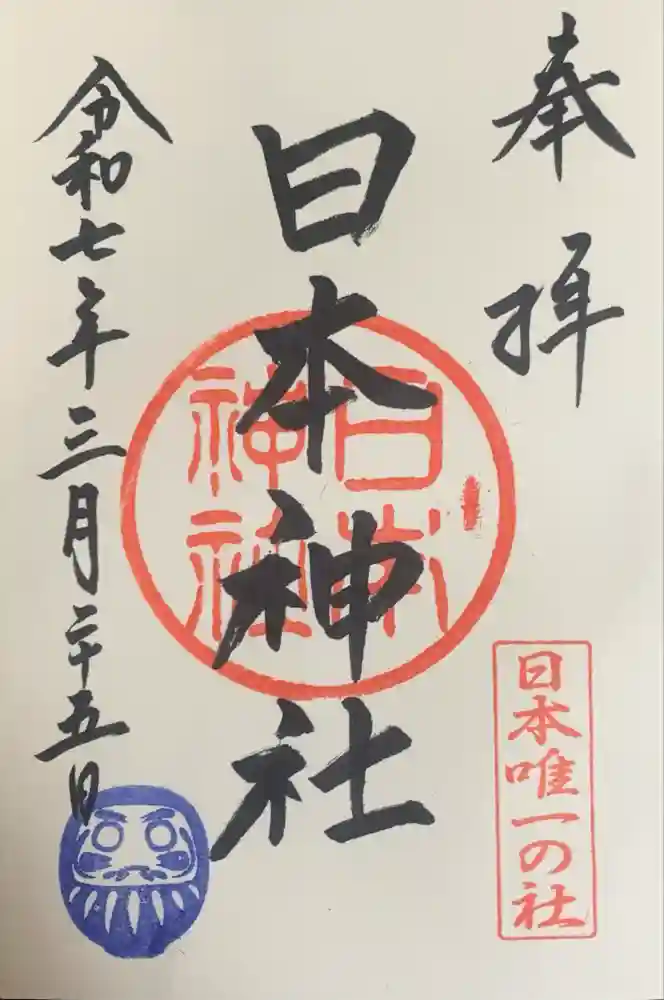 奉拝
日本神社
日本
神社
日本唯一の社
令和七年三月二十五日